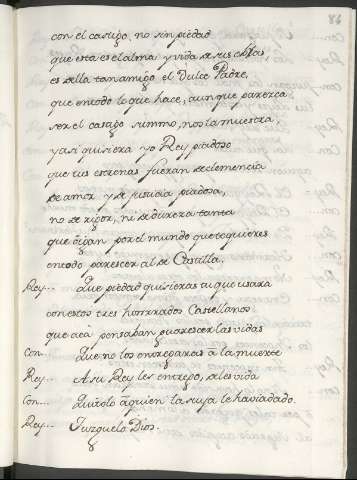 86
con el castigo, no sin piedad
que esta es el alma y vida de sus obras
es della tan amigo el Dulce Padre,
que en todo lo que hace, aunque parezca
ser el castigo summo, nos la muestra,
y asi quisiera yo Rey piadoso
que tus estrenas fueran de clemencia
de amor y de justicia piadosa,
no de rigor, ni de dureza tanta
que digan por el mundo que te quieres
en todo parescer al de Castilla.
Rey... Que piedad quisieras tu que usara
con estos tres honrrados Castellanos
que acà pensaban guarescer las vidas
Con... Que no los entregaras a la muerte
Rey... A su Rey los entrego, el les vida
Con... Quitòlo aquien la suya le havia dado.
Rey... Juzguelo Dios.